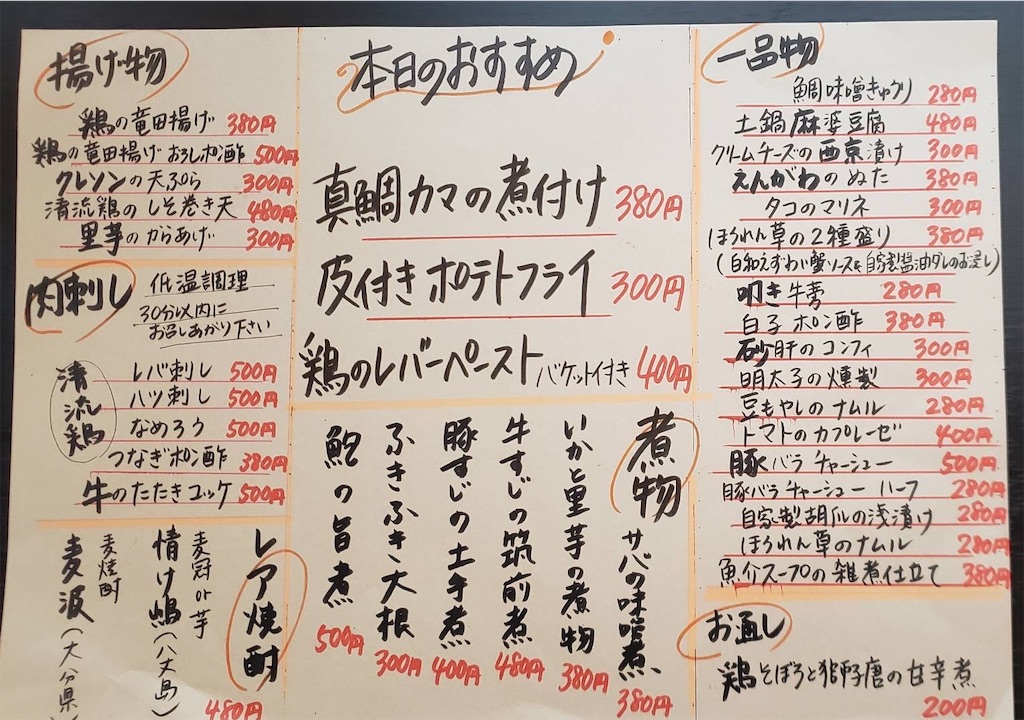 揚げ物
鶏の竜田揚げ 380円
鶏の竜田揚げ おろしポン酢 500円
クレソンの天ぷら 300円
清流鶏のしそ巻き天 480円
里芋のからあげ 300円
肉刺し
低温調理
30分以内に
お召しあがり下さい
清流鶏
レバ刺し 500円
ハツ刺し 500円
なめろう 500円
つなぎポン酢 380円
牛のたたきユッケ 500円
レア焼酎
麦冠 or 芋
情け嶋(八丈島)
480円
麦焼酎
麦波(大分県)
本日のおすすめ
真鯛カマの煮付け 380円
皮付きポテトフライ 300円
鶏のレバーペースト バケット付き 400円
煮物
サバの味噌煮 380円
いかと里芋の煮物 380円
牛すじの筑前煮 480円
豚すじの土手煮 400円
ふきふき大根 300円
鮑の旨煮 500円
一品物
鯛味噌きゅうり 280円
土鍋麻婆豆腐 480円
クリームチーズの西京漬け 300円
えんがわのぬた 380円
タコのマリネ 300円
ほうれん草の2種盛り 380円
(白和えずわい蟹ソース&自家製醤油ダレのお浸し)
叩き牛蒡 280円
白子ポン酢 380円
砂肝のコンフィ 300円
明太子の燻製 300円
豆もやしのナムル 280円
トマトのカプレーゼ 400円
豚バラチャーシュー 500円
豚バラチャーシュー ハーフ 280円
自家製胡瓜の浅漬け 280円
ほうれん草のナムル 280円
魚介スープの雑煮仕立て 380円
お通し
鶏そぼろと獅子唐の甘辛煮
200円